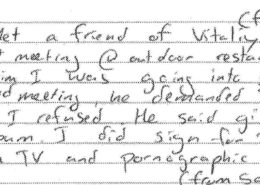 (f
let a friend of Vitaliy
t meeting @ outdoor resta
im I was going into
d meeting, he demanded
I refused. He said gi
bum I did sign for
TV and pornographic
(from Sa